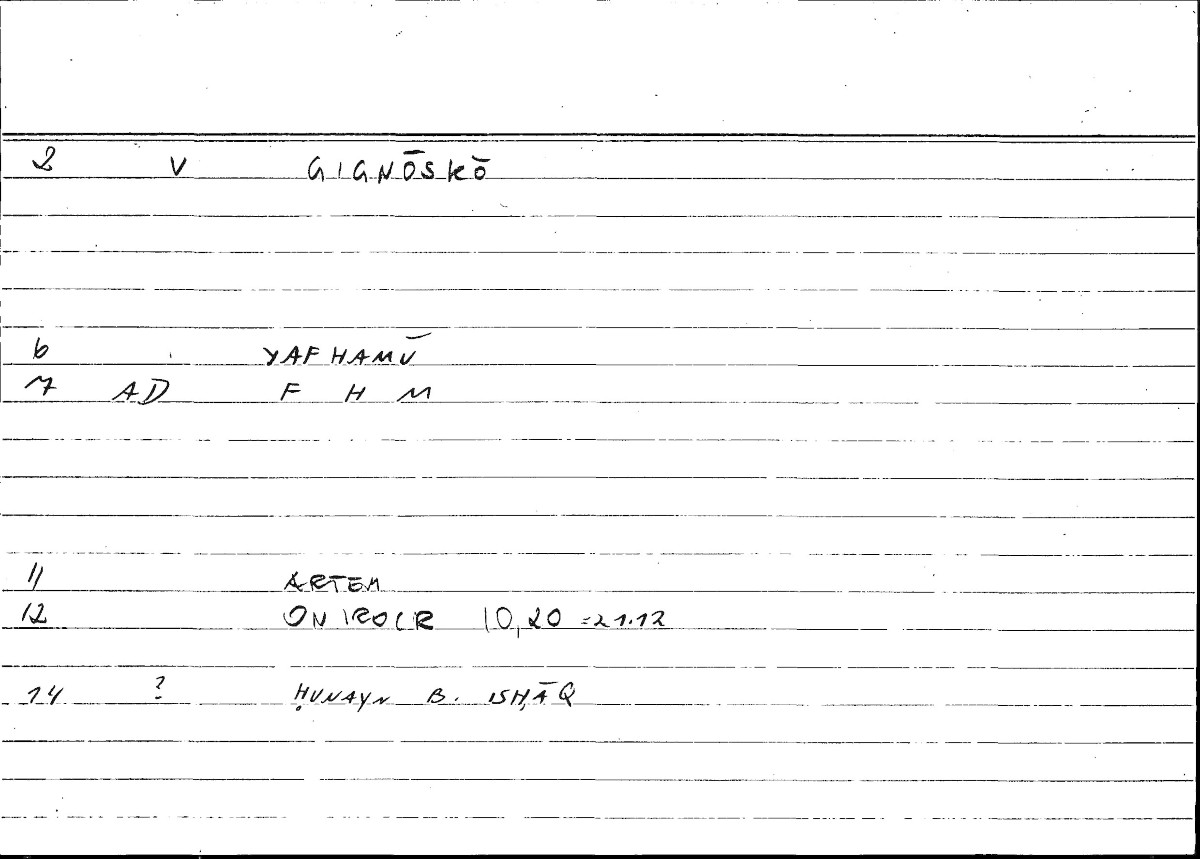 2 V GIGNŌSKŌ
6 YAFHAMŪ
7 AD F H M
11 ARTEM
12 ONIROCR 10,20 =21.12
14 ? ḤUNAYN B. ISḤĀQ